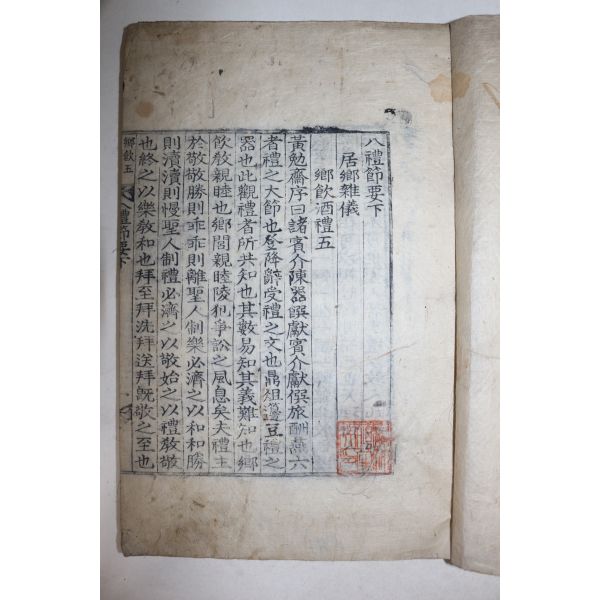 八禮節要下
居鄉雜儀
鄉飮酒禮五
黃勉齋序曰諸賓介陳器饌獻賓介獻僎旅酬燕六
者禮之大節也登降辭受禮之文也鼎俎籩豆禮之
器也此觀禮者所共知也其數易知其義難知也鄉
飮敎親睦也鄉閭親睦陵犯爭訟之風息矣夫禮主
於敬敬勝則乖乖則離聖人制樂必濟之以和和勝
則瀆瀆則慢聖人制禮必濟之以敬始之以禮敎敬
也終之以樂敎和也拜至拜洗拜送拜旣敬之至也
鄉飮五
八禮節要下